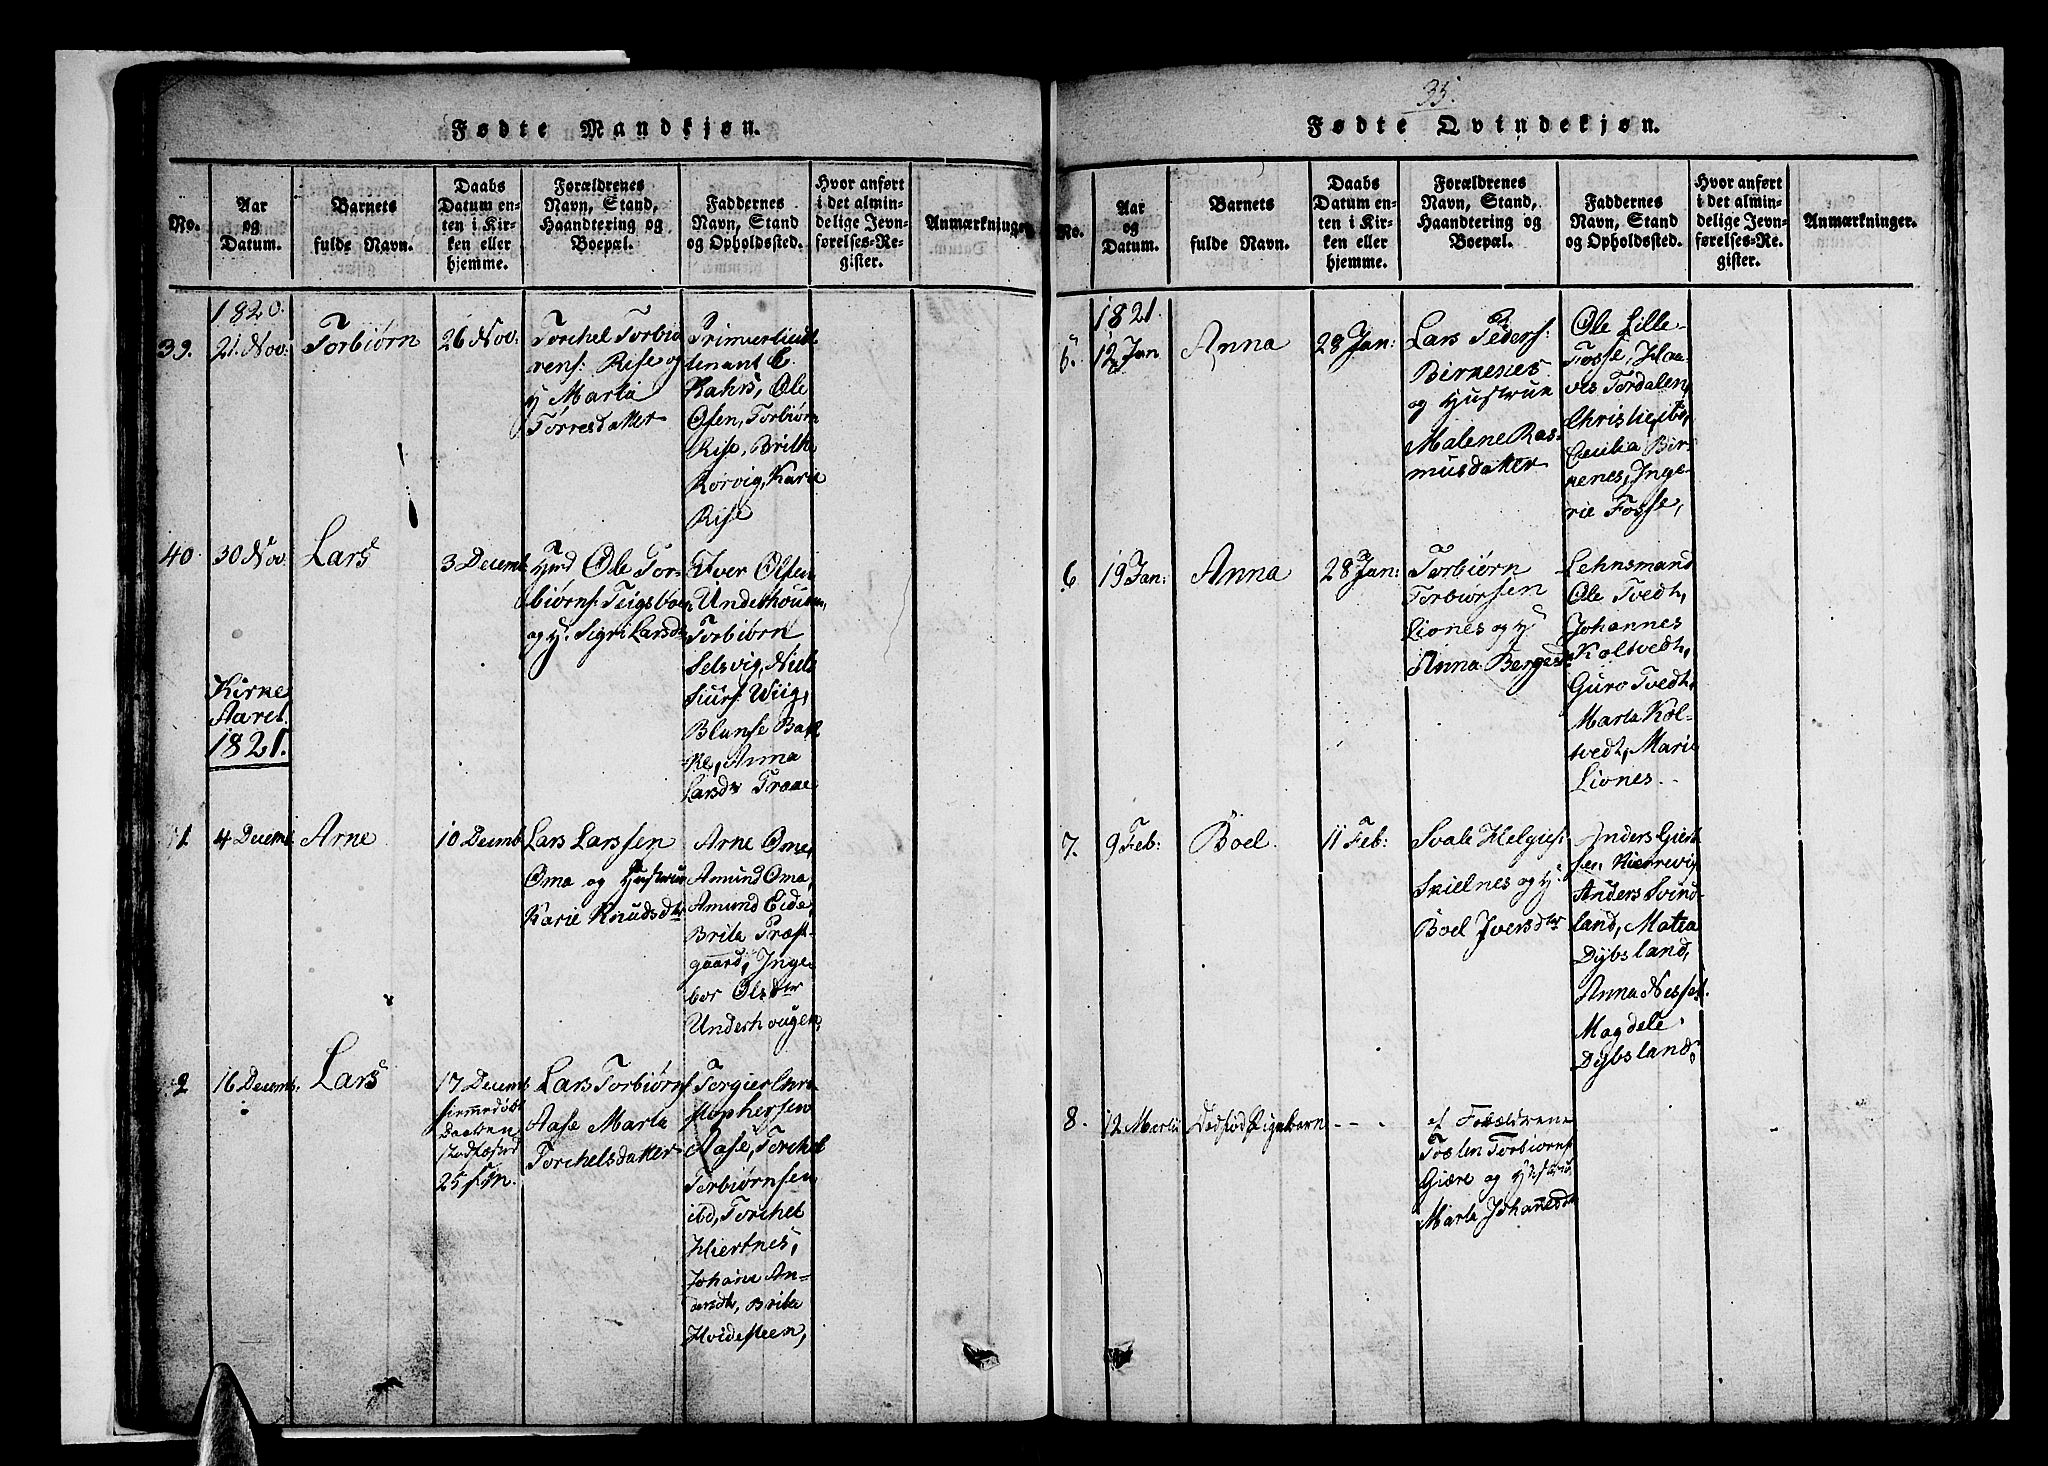 Fødte Mandkjøn.
No.
Aar
og
Datum.
Barnets
fulde Navn.
Daabs
Datum en-
ten i Kir-
ken eller
hjemme.
Forældrenes
Navn, Stand,
Haandtering og
Boepæl.
Faddernes
Navn, Stand
og Opholdssted.
Hvor anført
i det almin-
delige Jevn-
førelses-Re-
gister.
Anmærkninger
1820.
39.
21. Nov:
Torbiørn
26 Nov:
Torchel Torbiø
rens: Rise og
H Marta
Torresdatter
Primierlieut
tenant C.
Kahrs, Ole
Olsen, Torbiørn
Rise, Brithe
Rorvig, Karie
Rise
40
30 Nov.
Lars
3 Decemb
Hmd Ole Tor-
biørns: Teigsboen
og H. Sigri Larsdr
Iver Olsen
Underhougen,
Torbiørn
Selsvig, Niels
Siurs: Wiig,
Blunse Bak
ke, Anna
Larsdr Traae
Kirke
Aaret
1821.
1
4 Decemb
Arne
10 Decemb
Lars Larssen
Oma og Hustrue
Karie Knudsdtr
Arne Oma,
Amund Oma,
Amund Eide,
Brita Præst-
gaard, Inge-
bor Olsdtr
Underhougen,
2
16 Decemb.
Lars
17 Decemb
hiemmedøbt
Daaben
stadfæsted
25 s: M.
Lars Torbiørns
Aase Marta
Torchelsdatter
Torgier Chri
stophersen
Aase, Torchel
Torbiørnsen
ibd, Torchel
Hiertnes,
Johane An-
dandt, Brita
Hvidesteen,
35.
Fødte Qvindekjøn.
No.
Aar
og
Datum.
Barnets
fulde Navn.
Daabs
Datum en-
ten i Kir-
ken eller
hjemme.
Forældrenes
Navn, Stand,
Haandtering og
Boepæl.
Faddernes
Navn, Stand
og Opholdssted.
Hvor anført
i det almin-
delige Jevn-
førelses-Re-
gister.
Anmærkninger.
1821.
5.
12 Jan
Anna
28 Jan:
Lars Peders:
Birkenes
og Hustrue
Malene Ras-
musdatter
Ole Lille-
Fosse, Haa-
ves Tordalen,
Christie, ibd,
Cecilia Bir-
kenes, Inge-
rie Fosse,
6
19 Jan:
Anna
28 Jan:
Torbiørn
Torbiørsen
Liones og H
Anna Bergesdr
Lehnsmand
Ole Tvedt,
Johannes
Koltvedt,
Guro Tvedt,
Marta Kol-
tvedt, Marie
Liones
7.
9 Feb:
Boel.
11 Feb:
Svale Helgies:
Skielnes og H.
Boel Iversdtr
Anders Giert
sen Kierrevig
Anders Svind-
land, Matea
Dybsland,
Anna Nesset
Magdele
Dybsland,
8.
12 Martii
Dødfød Pigebarn
- - -
af Forældrene
Torbiørns
Giære og Hustrue
Marta Johanesdr